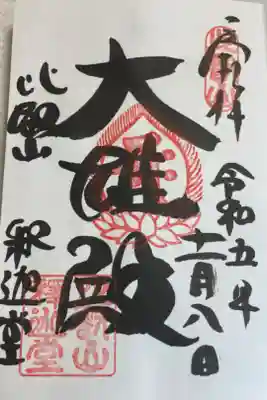 奉拝
令和五年
十二月八日
大雄殿
比叡山
釈迦堂